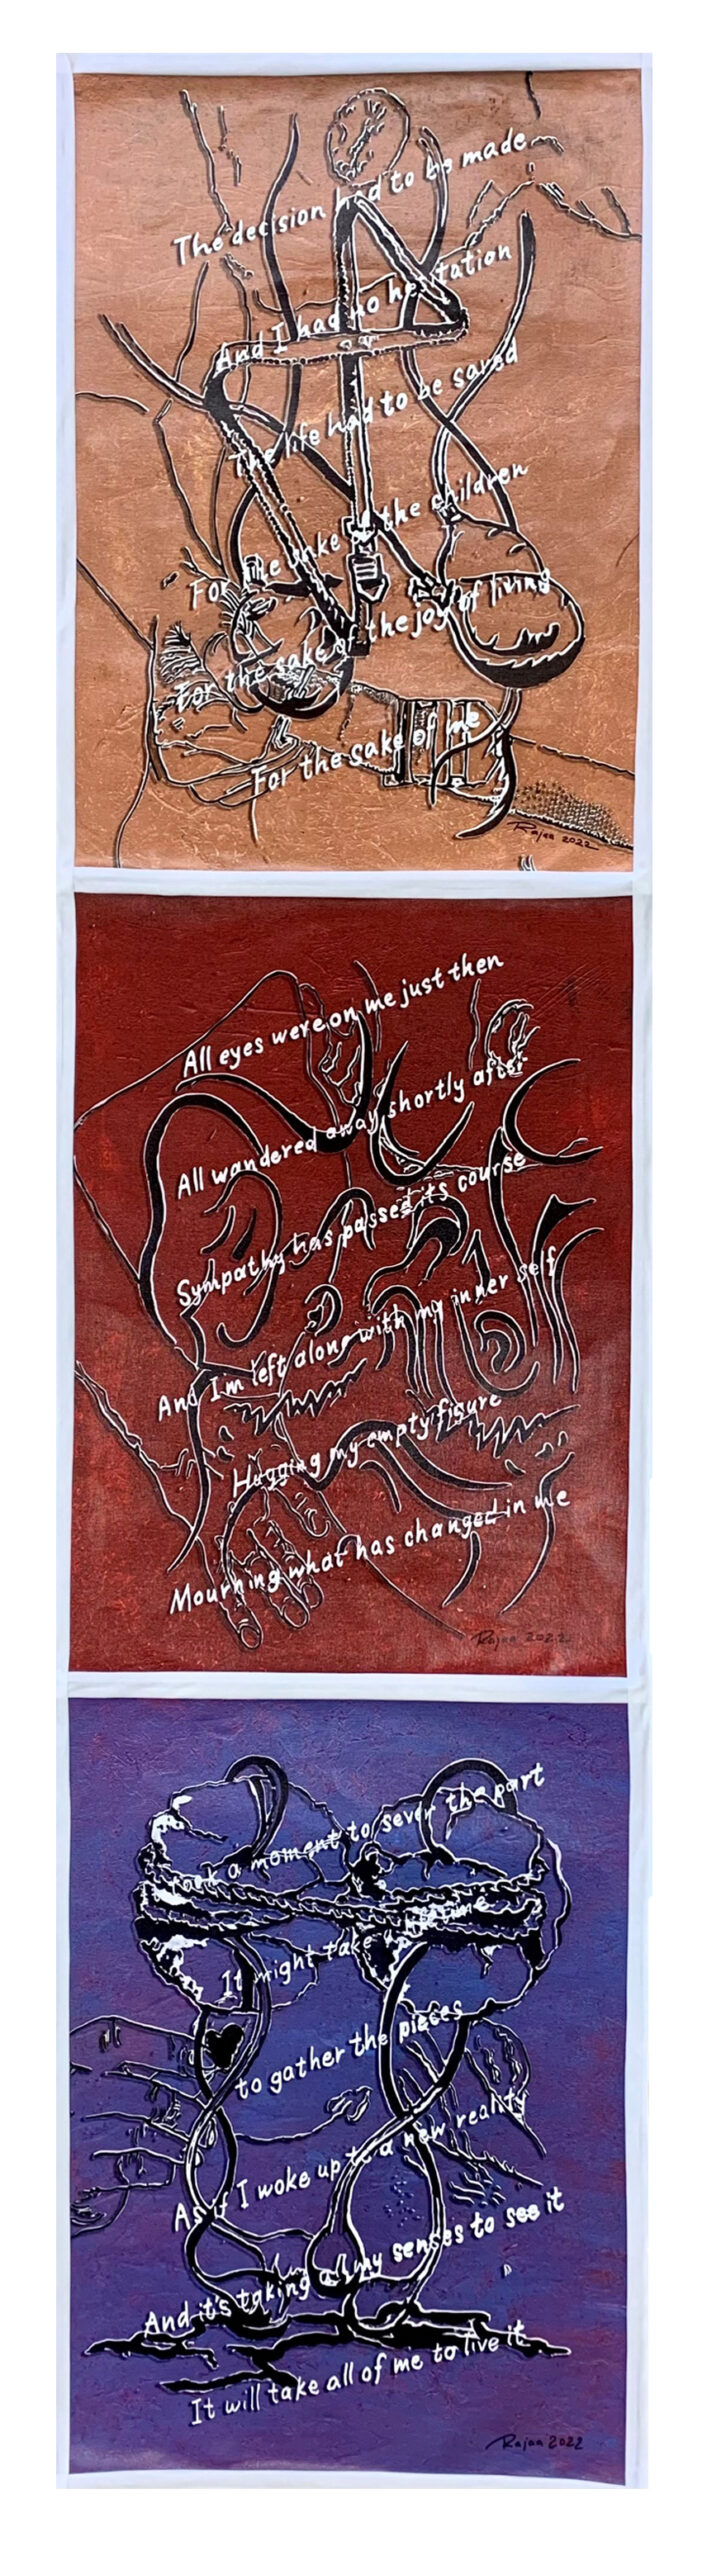 The decision had to be made
And I had no hesitation
The life had to be saved
For the sake of the children
For the sake of the joy of living
For the sake of me
Rajaa 2022
All eyes were on me just then
All wandered away shortly after
Sympathy has passed its course
And I'm left alone with my inner self
Hugging my empty figure
Mourning what has changed in me
Rajaa 2022
took a moment to sever the part
It might take a lifetime
to gather the pieces
As if I woke up to a new reality
And it's taking all my senses to see it
It will take all of me to live it
Rajaa 2022